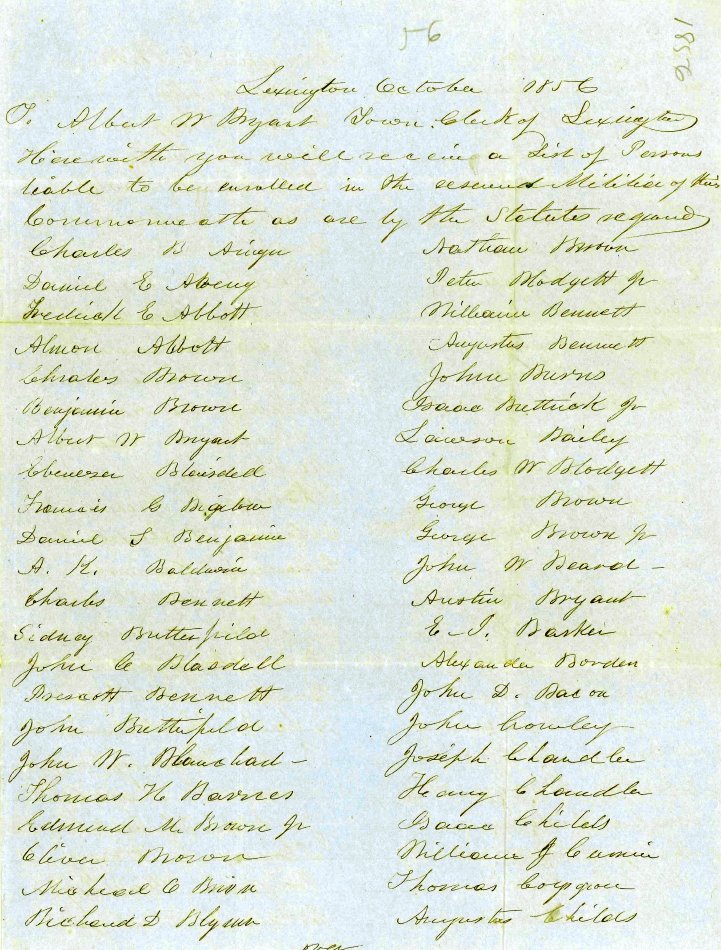 56
1856
Lexington October 1856
To Albert W Bryant Town Clerk of Lexington
Herewith you will receive a List of Persons
liable to be enrolled in the Militia of this
Commonwealth as are by the Statutes required
Charles B
Daniel E
Fredrick E Abbott
Almon Abbott
Chrales Brown
Benjamin Brown
Albert W Bryant
Ebenezer Blaisdell
Francis G Bigelow
Daniel S Benjamin
A. K. Baldwin
Charles Bennett
Sidney Butterfield
John C Blasdell
Prescott Bennett
John Butterfield
John W. Blanchard
Thomas H Barnes
Edmund M Brown Jr
Oliver Brown
Micheal C
Richard D Blynn
Nathan Brown
Peter Blodgett Jr
William Bennett
Augustus Bennett
John Burns
Isaac Buttrick Jr
Lawson Bailey
Charles W Blodgett
George Brown
George Brown Jr
John W Beard -
Austin Bryant
E. I. Barker
Alexander Borden
John D. Bacon
John Crowley
Joseph Chandler
Henry Chandler
Isaac Childs
William J
Thomas
Augustus Childs
over